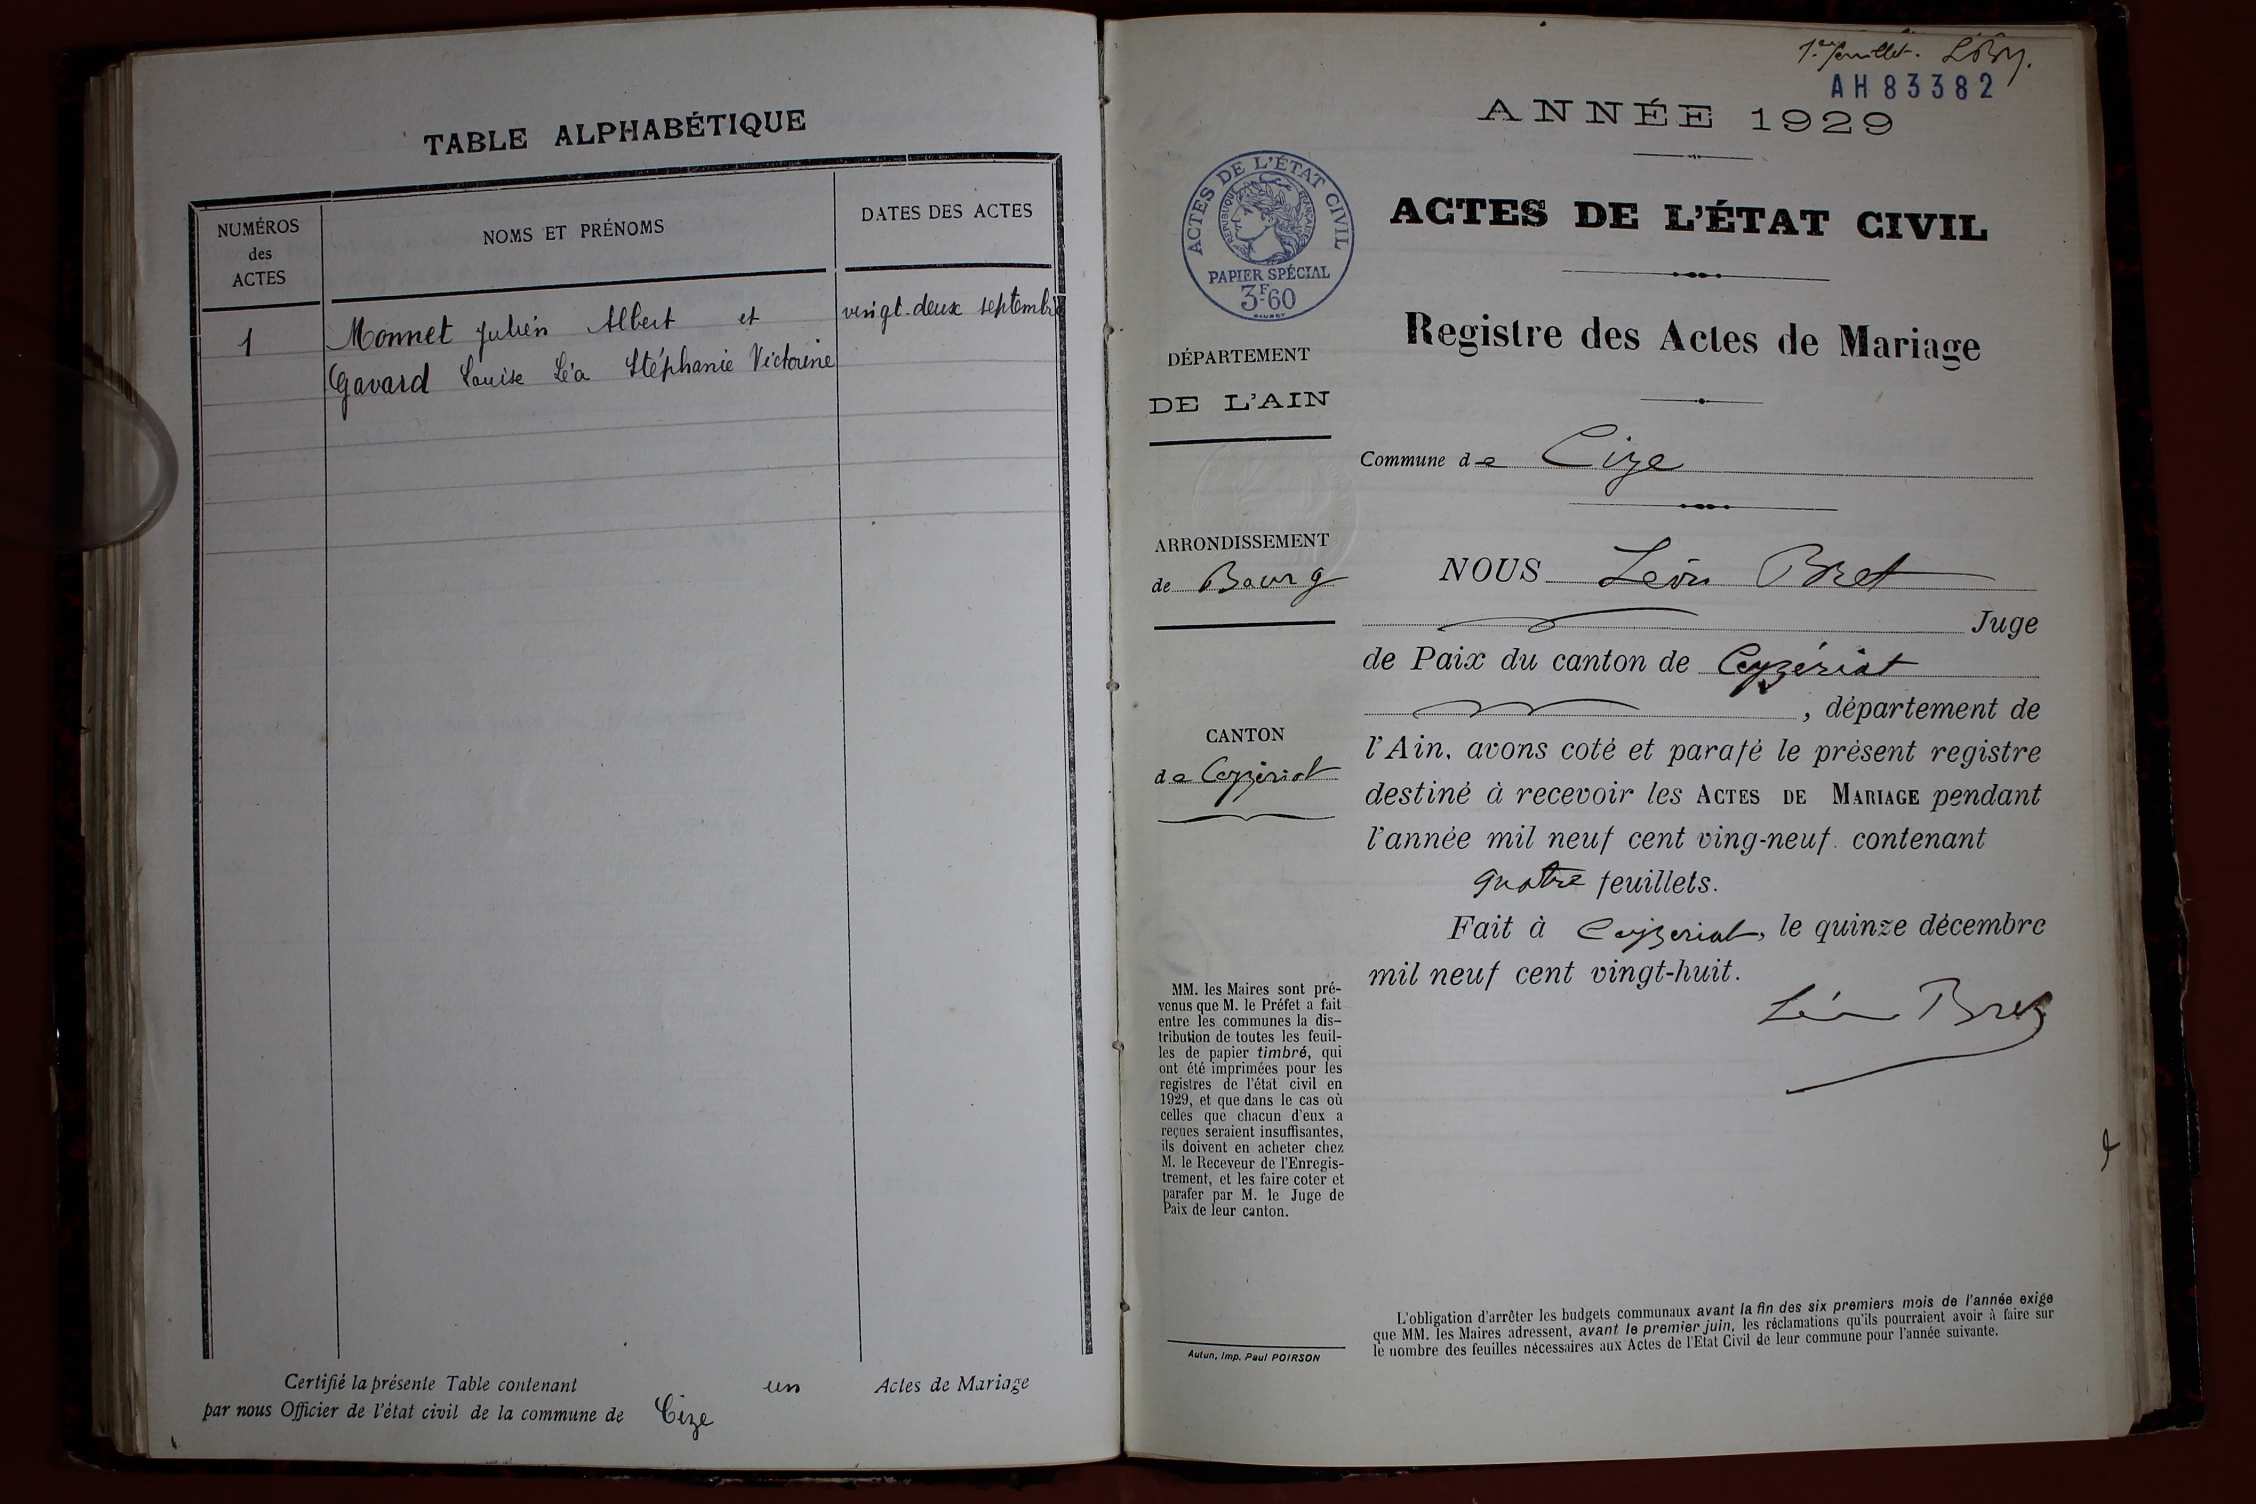 TABLE ALPHABÉTIQUE
NUMÉROS
des
ACTES
NOMS ET PRÉNOMS
DATES DES ACTES
1
Monnet Julien Albert et
vingt-deux septembre
Gavard Louise Léa Stéphanie Victorine
Certifié la présente Table contenant un Actes de Mariage
par nous Officier de l'état civil de la commune de Cize
1er feuillet.
AH83382
ANNÉE 1929
ACTES DE L'ÉTAT CIVIL
RÉPUBLIQUE FRANÇAISE
PAPIER SPÉCIAL
3F60
ACTES DE L'ÉTAT CIVIL
Registre des Actes de Mariage
DÉPARTEMENT
DE L'AIN
Commune de Cize
ARRONDISSEMENT
de Bourg
CANTON
de Ceyzériat
NOUS Léon Bret
Juge
de Paix du canton de Ceyzériat
, département de
l'Ain, avons coté et parafé le présent registre
destiné à recevoir les ACTES DE MARIAGE pendant
l'année mil neuf cent ving-neuf. contenant
quatre feuillets.
Fait à Ceyzeriat, le quinze décembre
mil neuf cent vingt-huit.
Léon Bret
MM. les Maires sont pré-
venus que M. le Préfet a fait
entre les communes la dis-
tribution de toutes les feuil-
les de papier timbré, qui
ont été imprimées pour les
registres de l'état civil en
1929, et que dans le cas où
celles que chacun d'eux a
reçues seraient insuffisantes,
ils doivent en acheter chez
M. le Receveur de l'Enregis-
trement, et les faire coter et
parafer par M. le Juge de
Paix de leur canton.
Autun, Imp. Paul POIRSON
L'obligation d'arrêter les budgets communaux avant la fin des six premiers mois de l'année exige
que MM. les Maires adressent, avant le premier juin, les réclamations qu'ils pourraient avoir à faire sur
le nombre des feuilles nécessaires aux Actes de l'Etat Civil de leur commune pour l'année suivante.